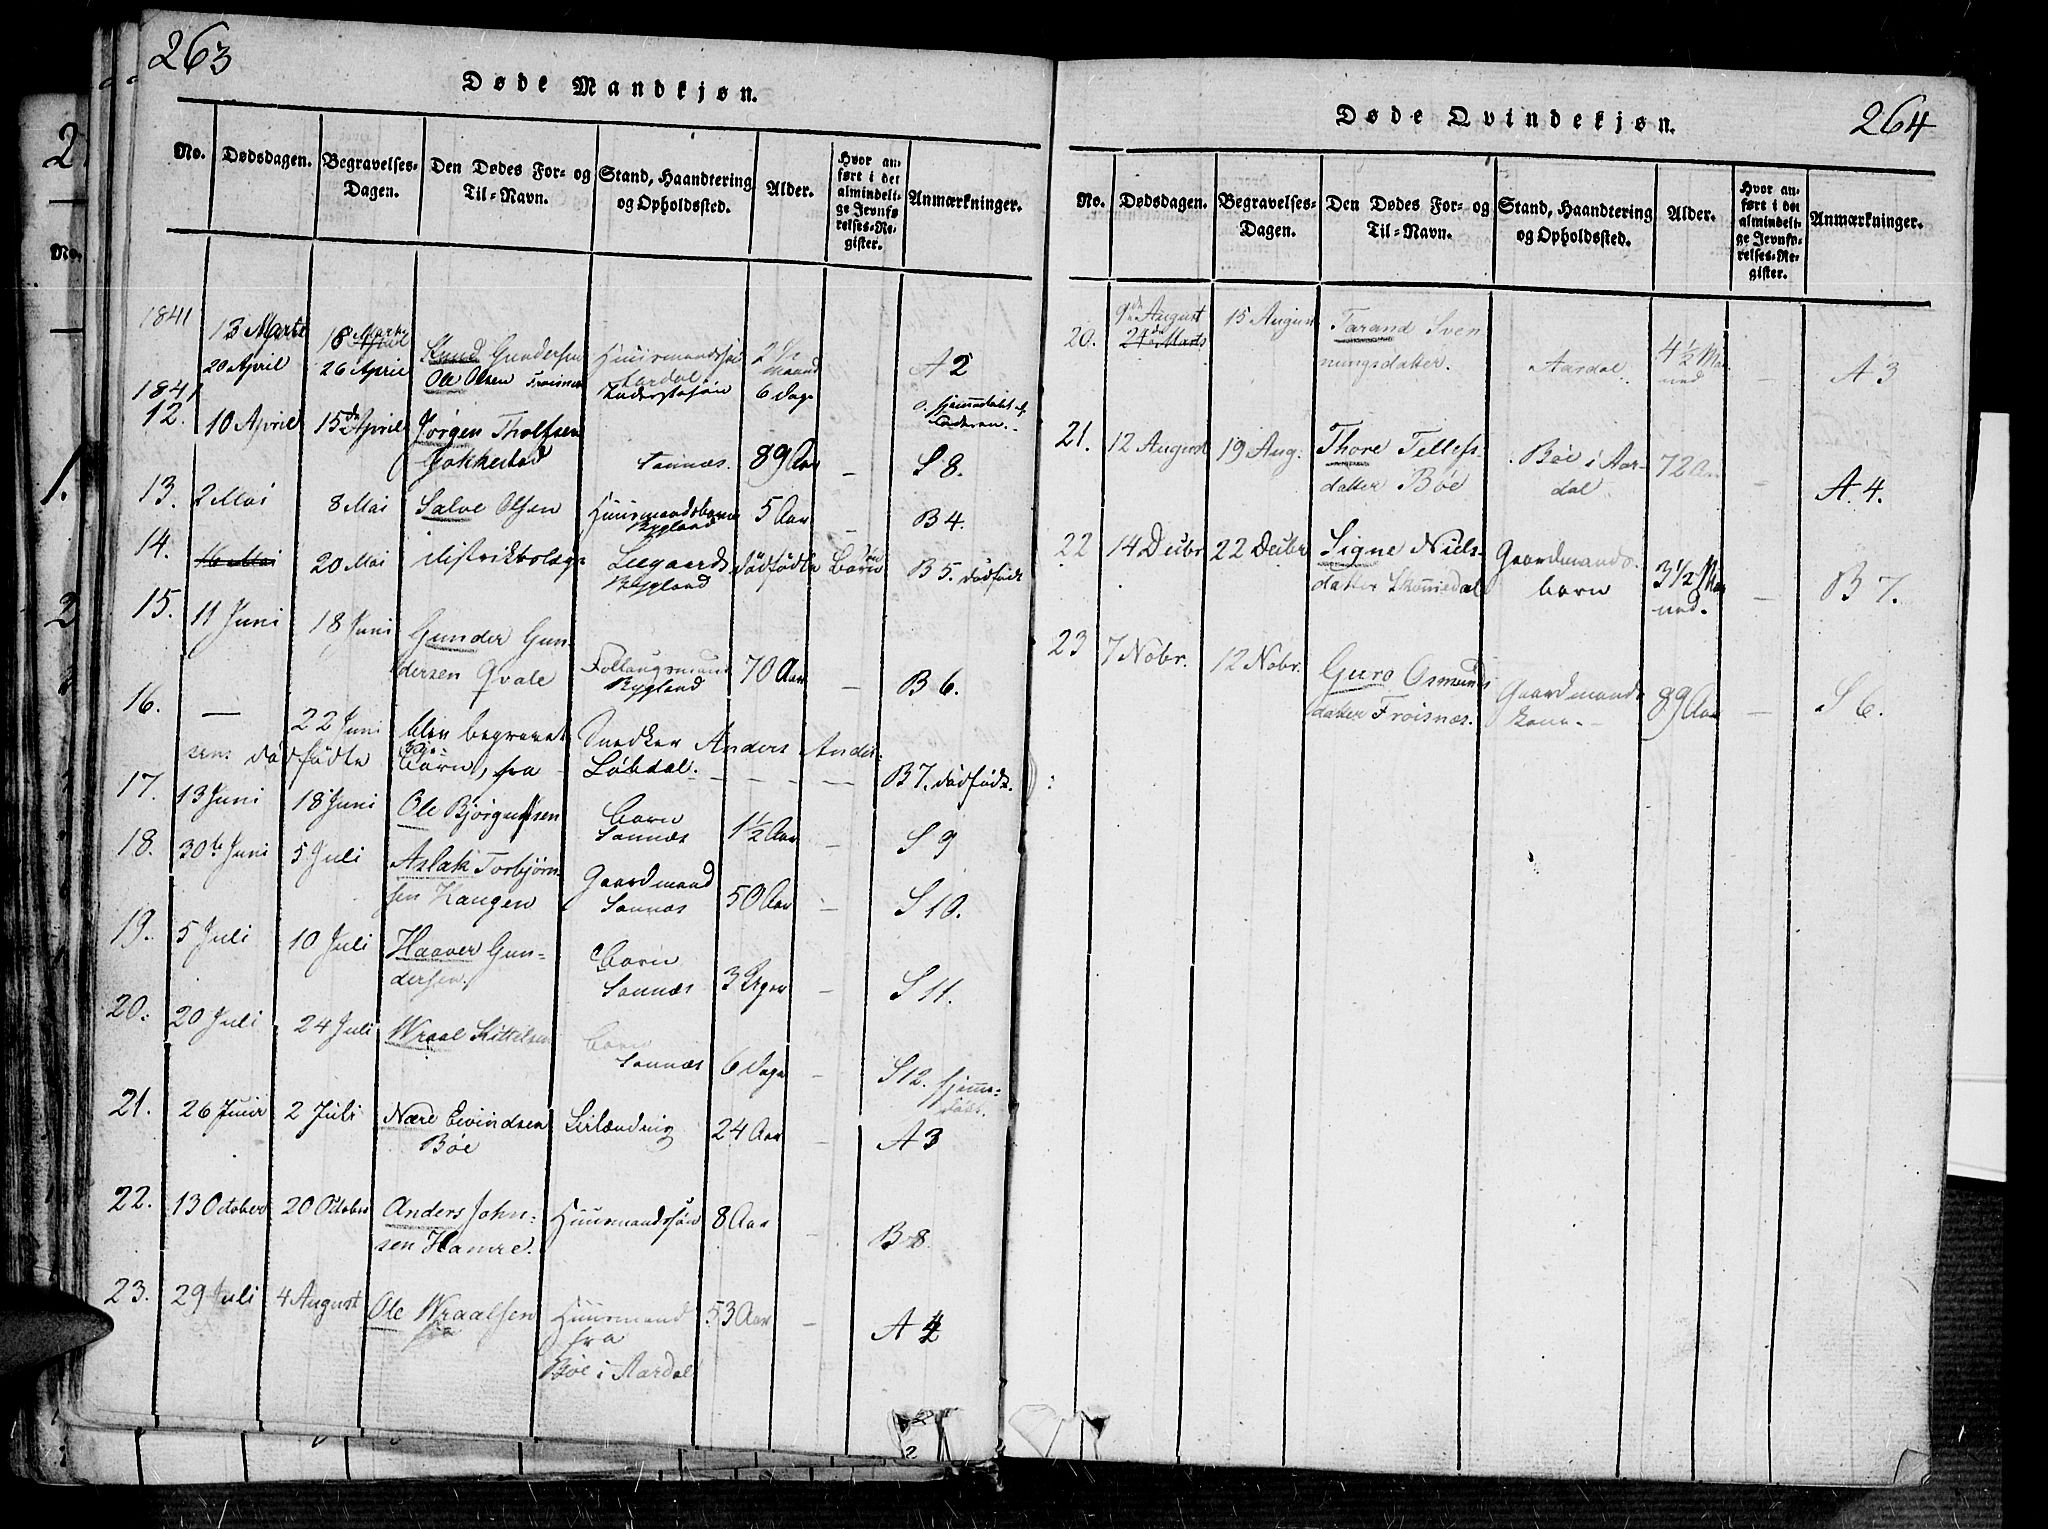 263
Døde Mandkjøn.
No.
Dødsdagen.
Begravelses-
Dagen.
Den Dødes For- og
Til-Navn.
Stand, Haandtering
og Opholdssted.
Alder.
Hvor an-
ført i det
almindeli-
ge Jevnfø-
relses-Re-
gister.
Anmærkninger.
1841
13 Marts 18 Marts Knud Gundersen Huusmandssøn
Aardal A2
20 April 26 April Ole Olsen Froisnæs 6 Dage
1841
12. 10 April 15de April Jørgen Tholfsen
Sannæs. 89 Aar – S 8.
13. 2 Mai 8 Mai Salve Olsen Huusmandsbarn
Bygland 5 Aar – B 4.
14. 20 Mai Leegaards dødfødte Barn
Bygland B 5. dødfødt
15. 11 Juni 18 Juni Gunder Gun-
dersen Qvale
Bygland 70 Aar – B 6.
16. — 22 Juni blev begravet Snedker Anders Ander-
sens dødfødte Barn, fra Løbdal. B 7. dødfødt.
17. 13 Juni 18 Juni Ole Bjørgufsen Barn
Sannæs 1½ Aar – S 9
18. 30te Juni 5 Juli Aslak Torbjørn-
sen Haugen Gaardmand
Sannæs 50 Aar – S 10.
19. 5 Juli 10 Juli Haaver Gun-
dersen. Barn
Sannæs 3 Uger – S 11.
20. 20 Juli 24 Juli Wraal Kittelsen Barn
Sannæs 6 Dage – S 12. hjemme-
døbt.
21. 26 Juni 2 Juli Nære Eivindsen
Bøe 24 Aar – A 3
22. 13 October 20 October Anders John-
sen Hamre. Huusmandssøn 8 Aar – B 8.
23. 29 Juli 4 August Ole Wraalsen
fra Huusmand
fra
Bøe i Aardal 53 Aar – A 4
264
Døde Qvindekjøn.
No.
Dødsdagen.
Begravelses-
Dagen.
Den Dødes For- og
Til-Navn.
Stand, Haandtering
og Opholdssted.
Alder.
Hvor an-
ført i det
almindeli-
ge Jevnfø-
relses-Re-
gister.
Anmærkninger.
20. 9de August
24de Marts 15 August Tarand Sven-
nungsdatter. Aardal. 4½ Maa-
ned – A 3
21. 12 August 19 Aug. Thore Tellefs-
datter Bøe Bøe i Aar-
dal. 72 Aar – A. 4.
22 14 Decbr 22 Decbr Signe Niels-
datter Skomedal Gaardmands-
barn 3½ Maa-
ned. – B 7.
23 7 Nobr. 12 Nobr. Guro Osmunds
datter Froisnæs. Gaardmands
kone. 89 Aar – S 6.